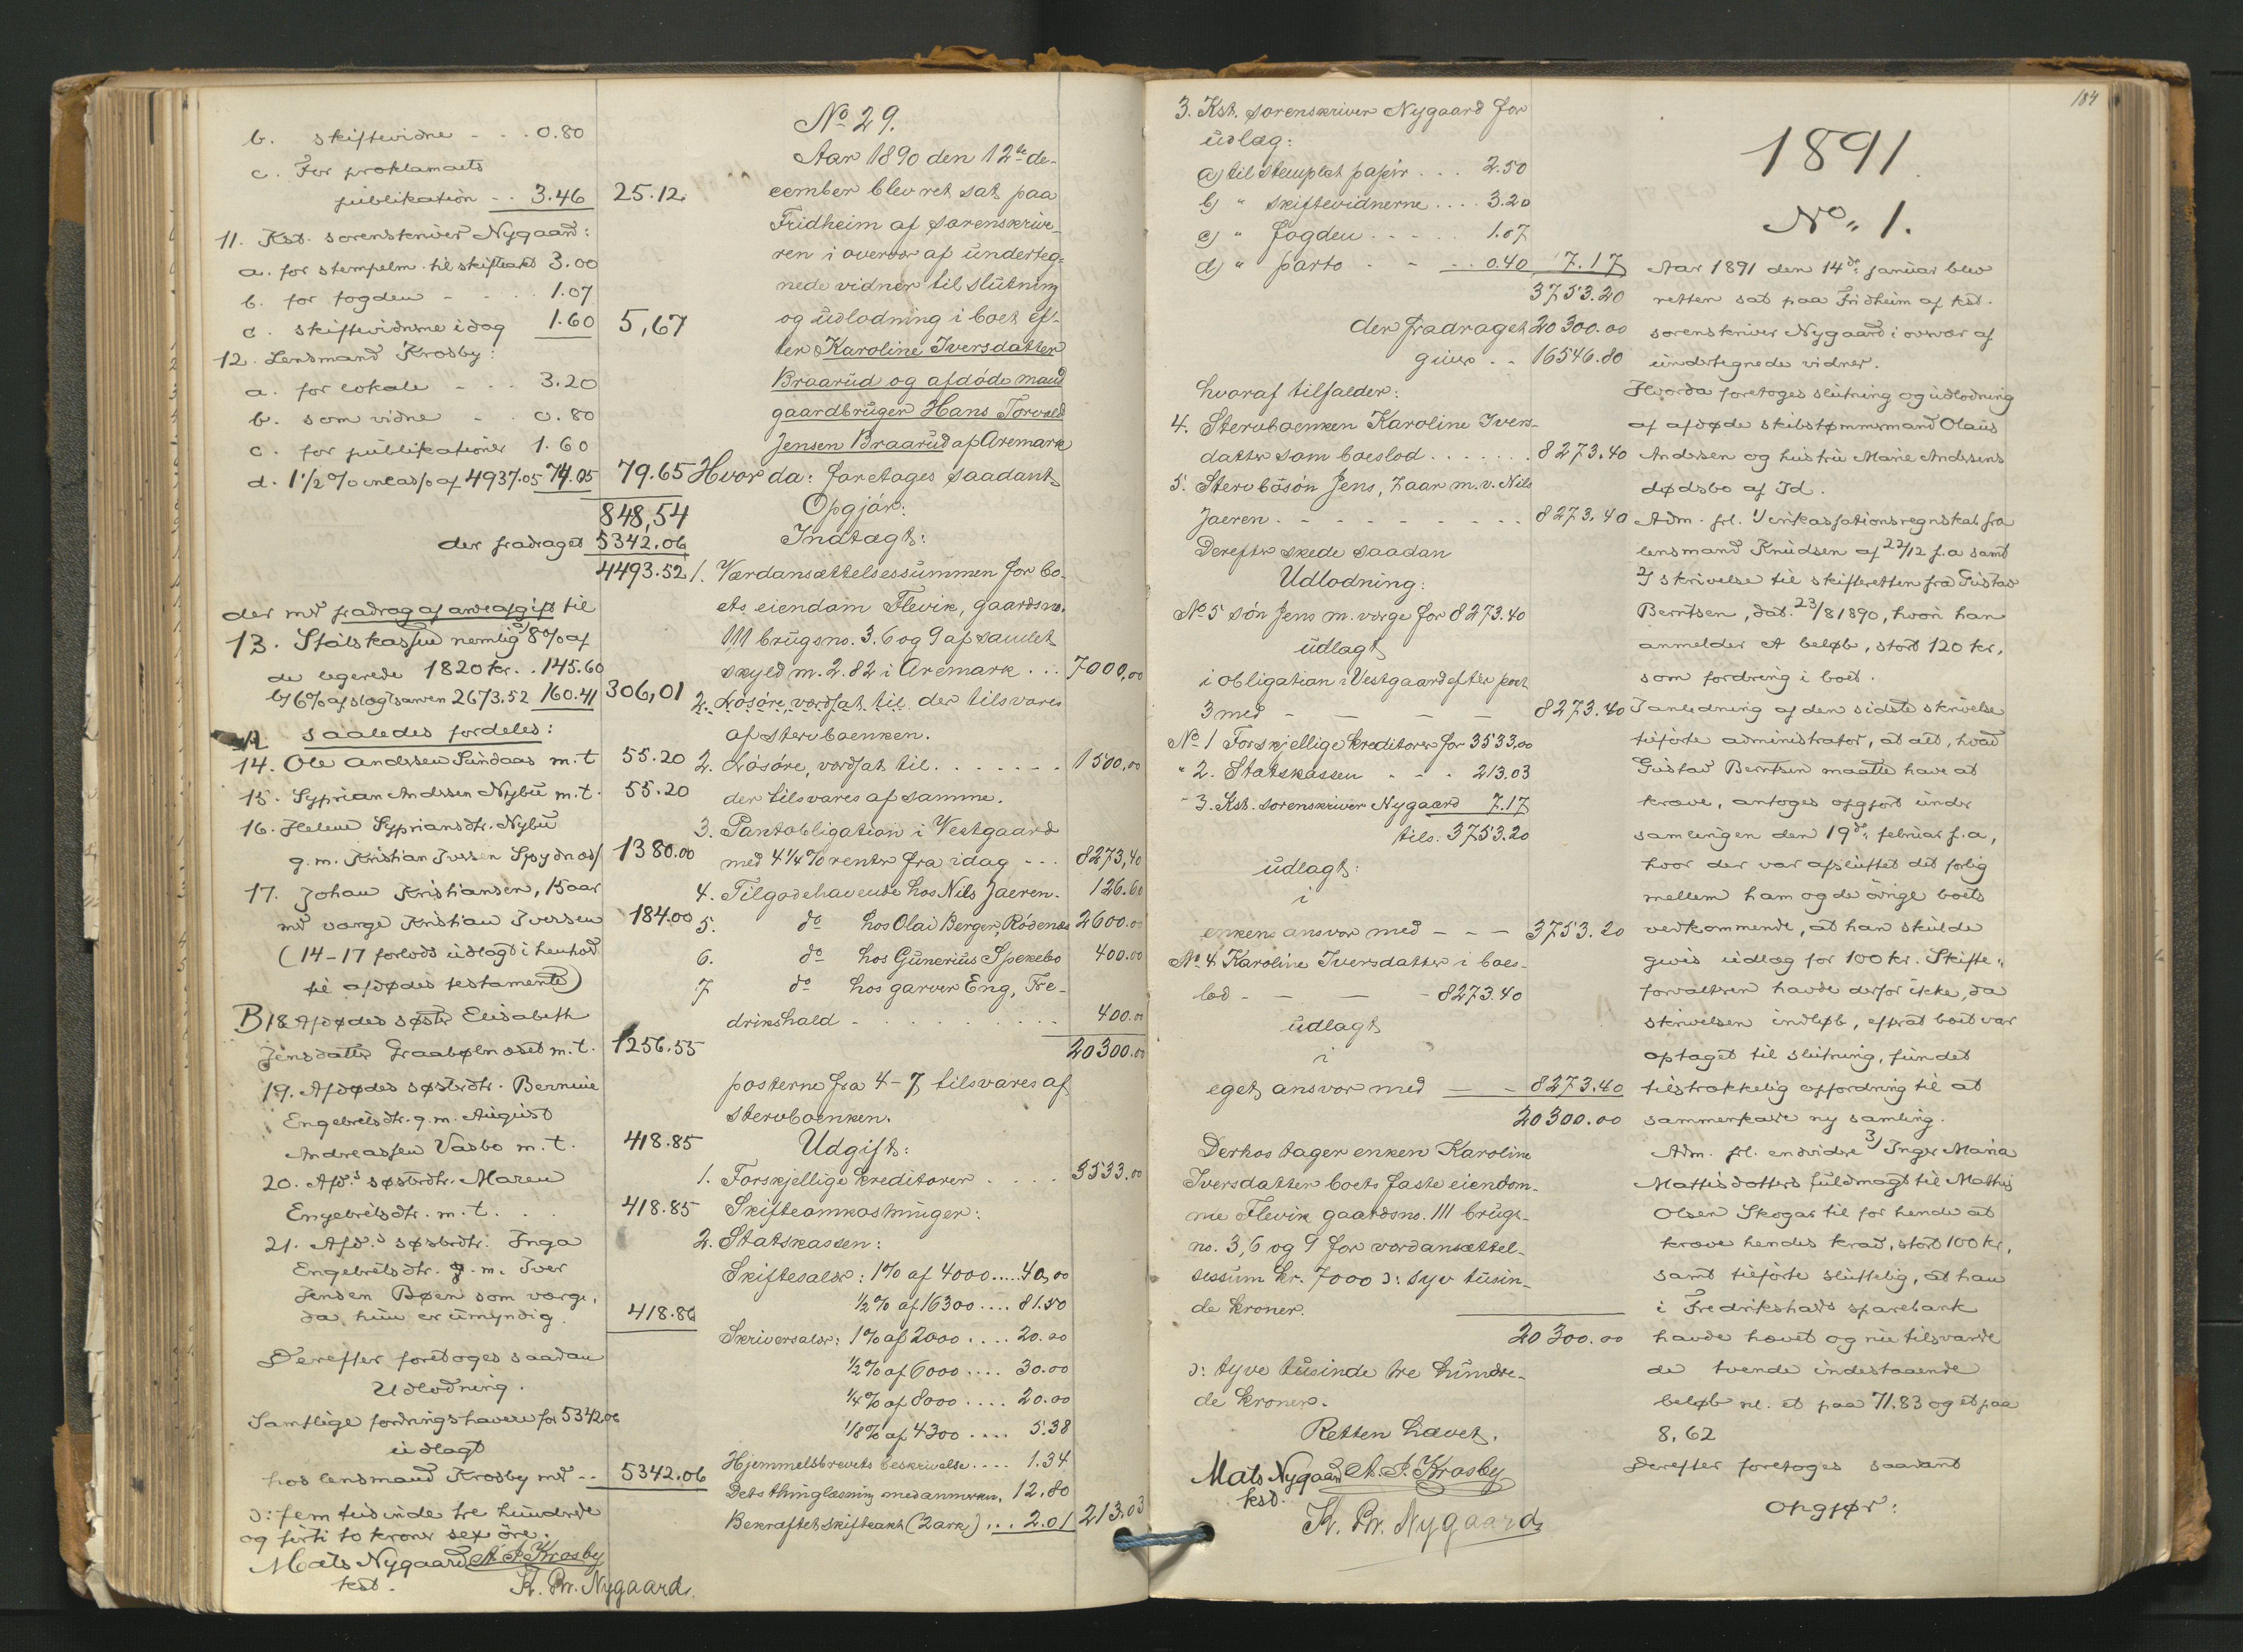 b. skiftevidne - - . 0.80
c. For proklamaets
publikation - . 3.46 25.12.
11. Kst. sorenskriver Nygaard:
a. for stempelm. til skifteakt 3.00
b. for fogden - . . . 1.07
c. skiftevidnerne idag 1.60 5,67
12. Lensmand Krosby:
a. for lokale - . . 3.20
b. som vidne - . 0.80
c. for publikationer 1.60
d. 1 1/2 % incasso af 4937.05 74.05 79.65
848,54
der fradraget 5342.06
4493.52
der md fradrag af arveafgift til
13. Statskassen nemlig a) 8% af
de legerede 1820 kr. . 145.60
b) 6% af slogtsarven 2673.52 160.41 306,01
A saaledes fordeles:
14. Ole Andersen Sundaas m.t 55.20
15. Syprian Andersen Nybu m.t. 55.20
16. Helene Sypriansdtr. Nybu
g.m. Kristian Iversen 1380.00
17. Johan Kristiansen, 15 aar
md vorge Kristian Iversen 184.00
(14-17 forlods udlagt i henhold
til afdødes testamente)
B 18 Afdødes søster Elisabeth
Jensdatter m.t. 1256.55
19. Afdødes søsterdtr. Bernine
Engebretsdtr. g.m. August
Andreassen Vasbo m.t. 418.85
20. Afd.s søsterdtr. Maren
Engebretsdtr. m.t. . . 418.85
21. Afd.s søsterdtr. Inga
Engebretsdtr. g.m. Iver
Jensen Bøen som vorge,
da hun er umyndig. 418.86
Derefter foretoges saadan
Udlodning.
Samtlige fordringshavere for 5342.06
udlagt
hos lensmand Krosby md -- 5342.06
ɔ: fem tusinde tre hundrede
og firti to kroner sex öre.
Mats Nygaard A. P. Krosby
kst. K. Pr. Nygaard.
No 29.
Aar 1890 den 12te de-
cember blev ret sat paa
Fridheim af sorenskrive-
ren i overvær af underteg-
nede vidner til slutning
og udlodning i boet ef-
ter Karoline Iversdatter
Braarud og afdöde mand
gaardbruger Hans Torvald
Jensen Braarud af Aremark
Hvor da: foretoges saadant
Opgjör:
Indtægt:
1. Værdansættelsessummen for bo-
ets eiendom Flevik, gaardsno.
111 brugsno. 3. 6 og 9 af samlet
skyld m. 2.82 i Aremark . . . 7000,00
2. Lösöre, værdsat til der tilsvares
af stervboenken.
2. Lösöre, værdsat til . . . . . . . 1500,00
der tilsvares af samme.
3. Pantobligation i Vestgaard
med 4 1/4 % renter fra idag - - - 8273,40
4. Tilgodehavende hos Nils Jaeren. 126.60
5. do hos Olai Berger, Rödenæs 2600.00
6. do hos Gunerius Spekebo 400.00
7 do hos garver Eng, Fre-
drikshald - . . . . . . . . . 400.00
20300.00
posterne fra 4-7 tilsvares af
stervboenken.
Udgift:
1. Forskjellige kreditorer . . . . 3533.00
Skifteomkostninger:
2. Statskassen:
Skiftesalær: 1% af 4000 .... 40,00
1/2% af 16300 .... 81.50
Skriversalær: 1% af 2000 .... 20.00
1/2% af 6000 .... 30.00
1/4% af 8000 .... 20.00
1/8% af 4300 .... 5.38
Hjemmelsbrevets beskrivelse .... 1.34
Dets thinglæsning med anmerkn. 12.80
Bekræftet skifteakt (2 ark) ... 2.01 213.03
3. Kst. sorenskriver Nygaard for
udlæg:
a) til stemplet papir . . . 2.50
b) " skiftevidnerne .... 3.20
c) " fogden . - - . . 1.07
d) " porto . - - . . 0.40 7.17
3753.20
der fradraget 20300.00
giver . . 16546.80
hvoraf tilfalder:
4. Stervboenken Karoline Ivers-
datter som boeslod . . . . . . . 8273.40
5. Stervbosön Jens, 7 aar m. v. Nils
Jaeren . - - - - - - - . . 8273.40
Derefter skede saadan
Udlodning:
No 5 sön Jens m. vorge for 8273.40
udlagt
i obligation i Vestgaard efter post
3 med - — — — 8273.40
No 1 Forskjellige kreditorer for 3533,00
" 2. Statskassen - - . 213.03
- 3. Kst. sorenskriver Nygaard 7.17
tils. 3753.20
udlagt:
i
enkens ansvar med - - - 3753.20
No 4 Karoline Iversdatter i boes-
lod - — — - 8273.40
udlagt
i
eget ansvar med — - 8273.40
20300.00
Derhos tager enken Karoline
Iversdatter boets faste eiendom-
me Flevik gaardsno. 111 brugs-
no. 3, 6 og 9 for værdansættel-
sessum kr. 7000 ɔ: syv tusin-
de kroner.
20300.00
ɔ: tyve tusinde tre hundre-
de kroner.
Retten hævet.
Mats Nygaard A. P. Krosby
kst.
K. Pr. Nygaard
184
1891.
No „ 1.
Aar 1891 den 14de januar blev
retten sat paa Fridheim af kst.
sorenskriver Nygaard i overvær af
undertegnede vidner.
Hvorda foretoges slutning og udlodning
af afdøde skibstømmermand Olaus
Andersen og hustru Marie Andersens
dødsbo af Id.
Adm. frl. 1/ inkassationsregnskab fra
lensmand Knudsen af 22/12 f.a samt
2/ skrivelse til skifteretten fra Gustav
Berntsen, dat. 23/8 1890, hvori han
anmelder et beløb, stort 120 kr,
som fordring i boet.
I anledning af den sidste skrivelse
tilførte administrator, at det, hvad
Gustav Berntsen maatte have at
kræve, antoges opgjort under
samlingen den 19de februar f.a,
hvor der var afsluttet det forlig
mellem ham og de övrige boets
vedkommende, at han skulde
givis udlæg for 100 kr. Skifte-
forvalteren havde derfor ikke, da
skrivelsen indløb, efterat boet var
optaget til slutning, fundet
tilstrækkelig opfordring til at
sammenkalde ny samling.
Adm. frl. endvidere 3/ Inger Maria
Mattisdatters fuldmagt til Mathis
Olsen Skogar til for hende at
kræve hendes krav, stort 100 kr,
samt tilførte sluttelig, at han
i Fredrikshalds sparebank
havde hævet og nu tilsvarede
de tvende indestaaende
beløb nl. et paa 71.83 og et paa
8,62
Derefter foretoges saadant
Opgjør: